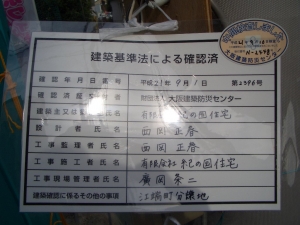 建築基準法による確認済
確認年月日番号 平成21年9月1日 第2396号
確認済証交付者 財団法人大阪建築防災センター
建築主又は築造主氏名 有限会社紀の国住宅
設計者氏名 西岡正春
工事監理者氏名 西岡正春
工事施工者氏名 有限会社紀の国住宅
工事現場管理者氏名 廣岡幸二
建築確認に係るその他の事項 江端町分譲地
大阪建築防災センター